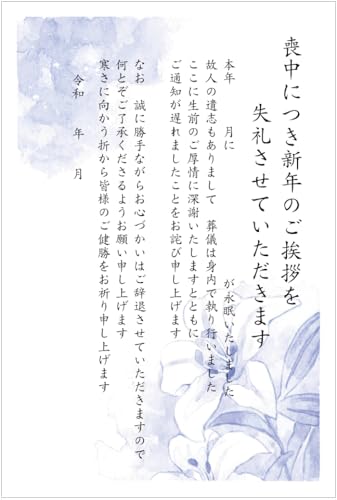 喪中につき新年のご挨拶を
失礼させていただきます
本年　　月に　　　　　　　が永眠いたしました
故人の遺志もありまして　葬儀は身内で執り行いました
ここに生前のご厚情に深謝いたしますとともに
ご通知が遅れましたことをお詫び申し上げます
なお　誠に勝手ながらお心づかいはご辞退させていただきますので
何とぞご了承くださるようお願い申し上げます
寒さに向かう折から皆様のご健勝をお祈り申し上げます
令和　　年　　月